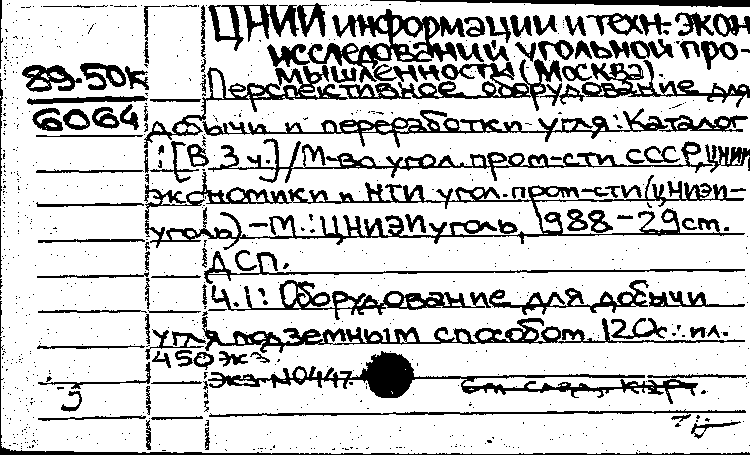 ЦНИИ информации и техн.-экон
исследований угольной про-
мышленности (Москва).
89-50к
6064
Перспективное оборудование для
добычи и переработки угля: Каталог
: [В 3 ч.] / М-во угол. пром-сти СССР, ЦНИИ
экономики и НТИ угол. пром-сти (ЦНИЭИ-
уголь). - М.: ЦНИЭИуголь, 1988 - 29 см.
ДСП.
Ч.1: Оборудование для добычи
угля подземным способом. 120 с.: ил.
450 экз.
Экз. N0447
См. след. карт.